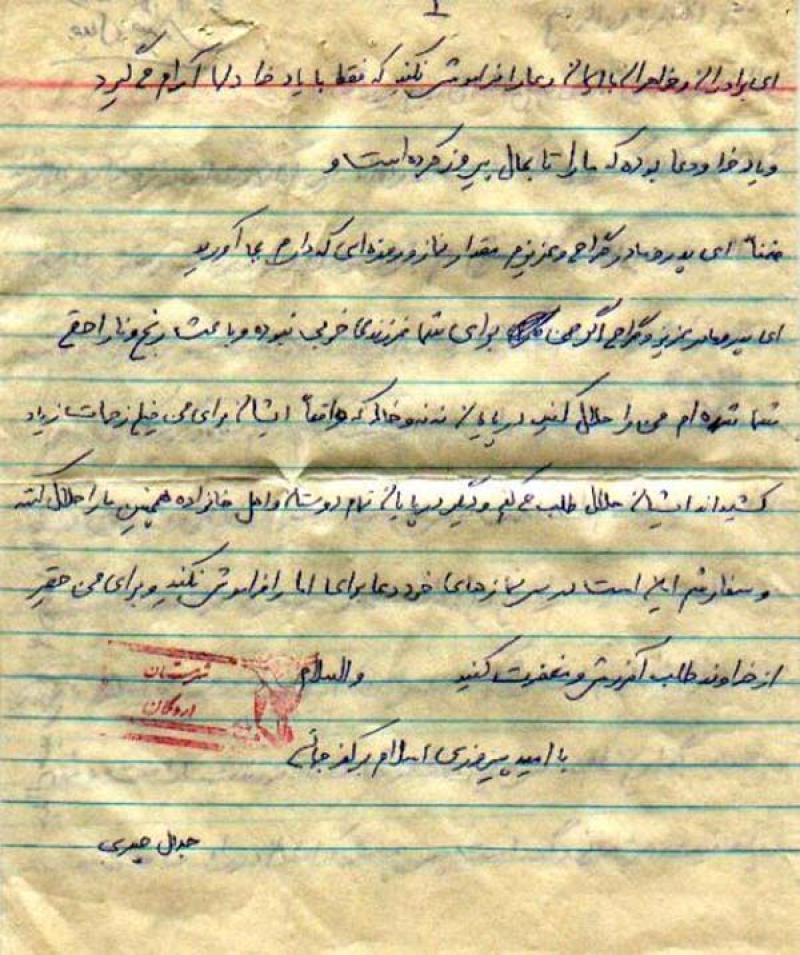 ای برادران و خواهران با ایمان دعا را فراموش نکنید که فقط با یاد خدا دلها آرام می گیرد
و یاد خدا و دعا بوده که ما را تا بحال پیروز کرده است و
ضمناً ای پدر و مادر گرامی و عزیزم مقدار نماز و روزه ای که دارم بجا آورید
ای پدر و مادر عزیز و گرامی اگر من برای شما فرزندی خوبی نبوده و باعث رنج و ناراحتی
شما شده ام من را حلال کنید در پایان ننه و خاله که واقعاً ایشان برای من خیلی زحمات زیاد
کشیداند ایشان حلال طلب می کنم و دیگر در پایان تمام دوستان و اهل خانواده همچنین ما را حلال کنند
و سفارشم این است در سر نمازهای خود دعا برای اما را فراموش نکنید و برای من حقیر
از خداوند طلب آمرزش و مغفرت کنید والسلام
شهرستان
اردکان
با امید پیروزی اسلام بر کفر جهانی
حیدری